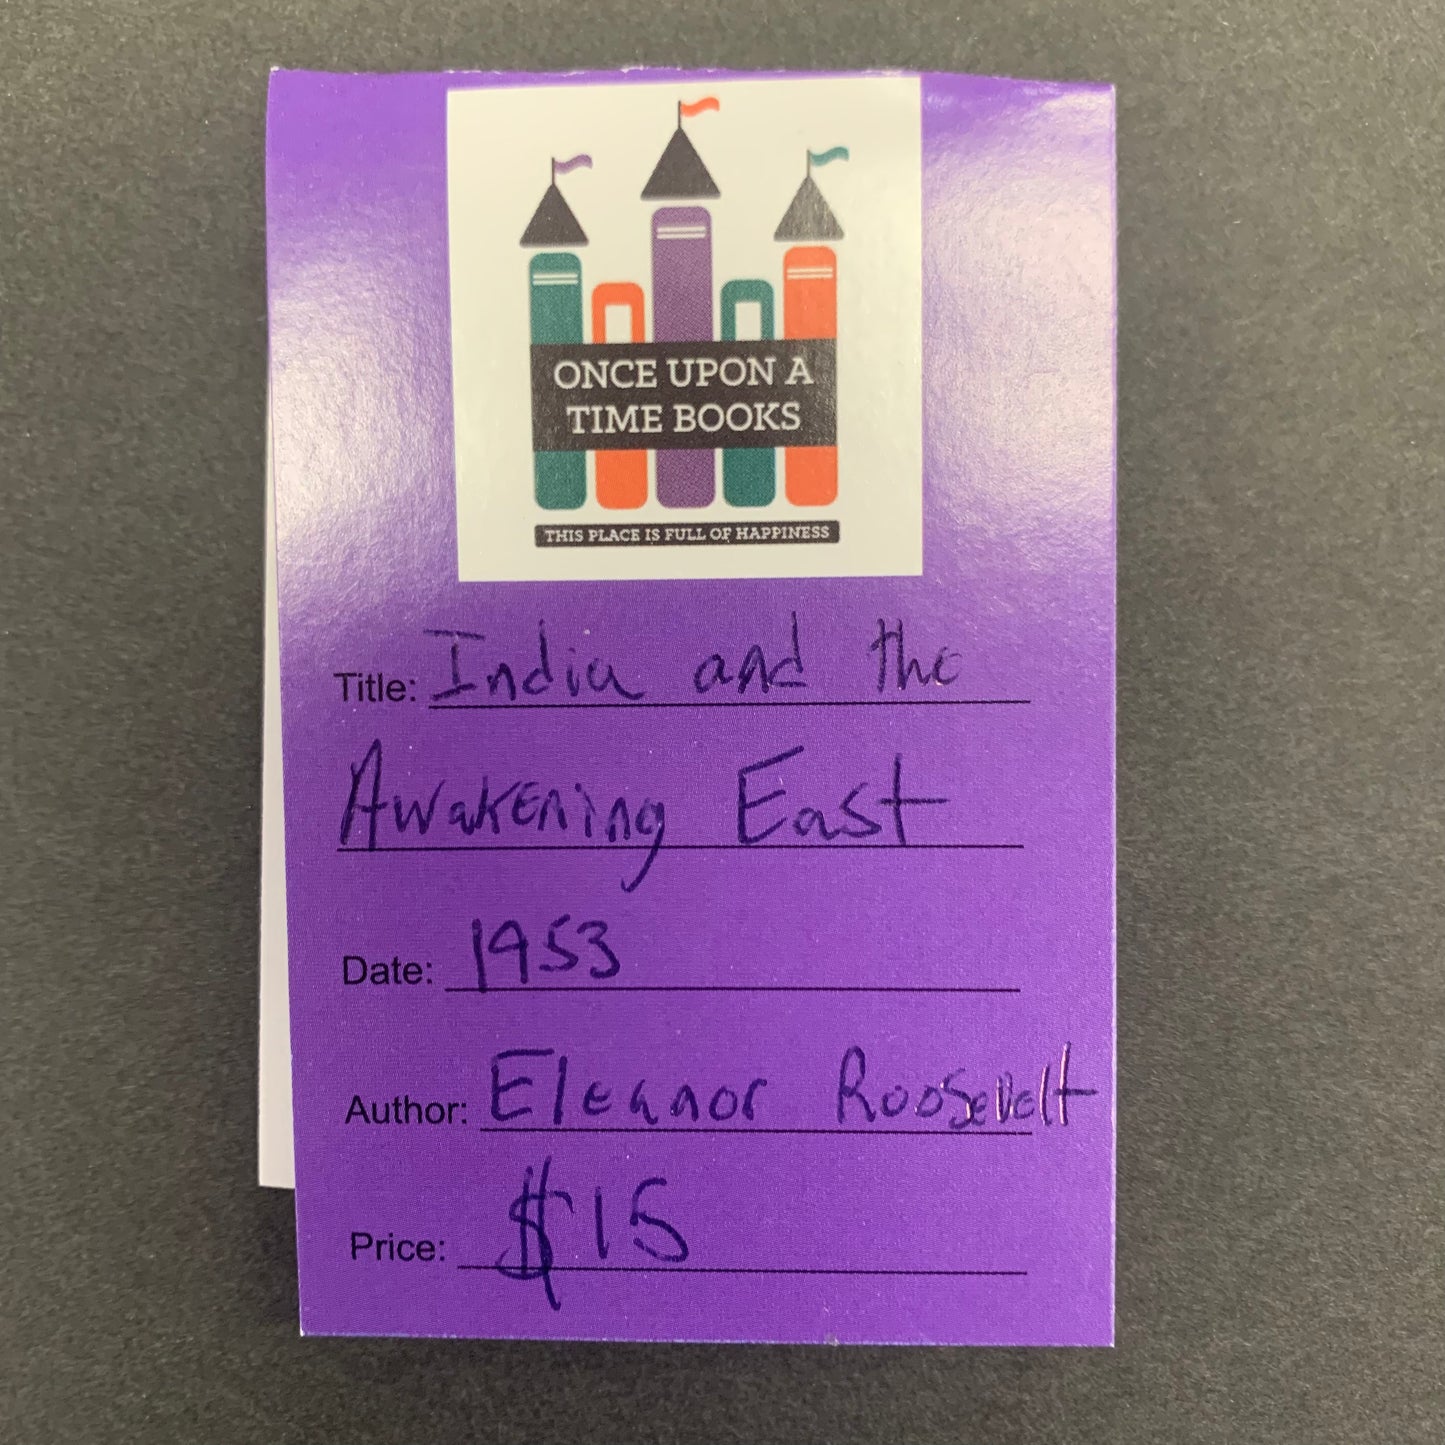 ONCE UPON A
TIME BOOKS
THIS PLACE IS FULL OF HAPPINESS
Title: India and the
Awakening East
Date: 1953
Author: Eleanor Roosevelt
Price: $15